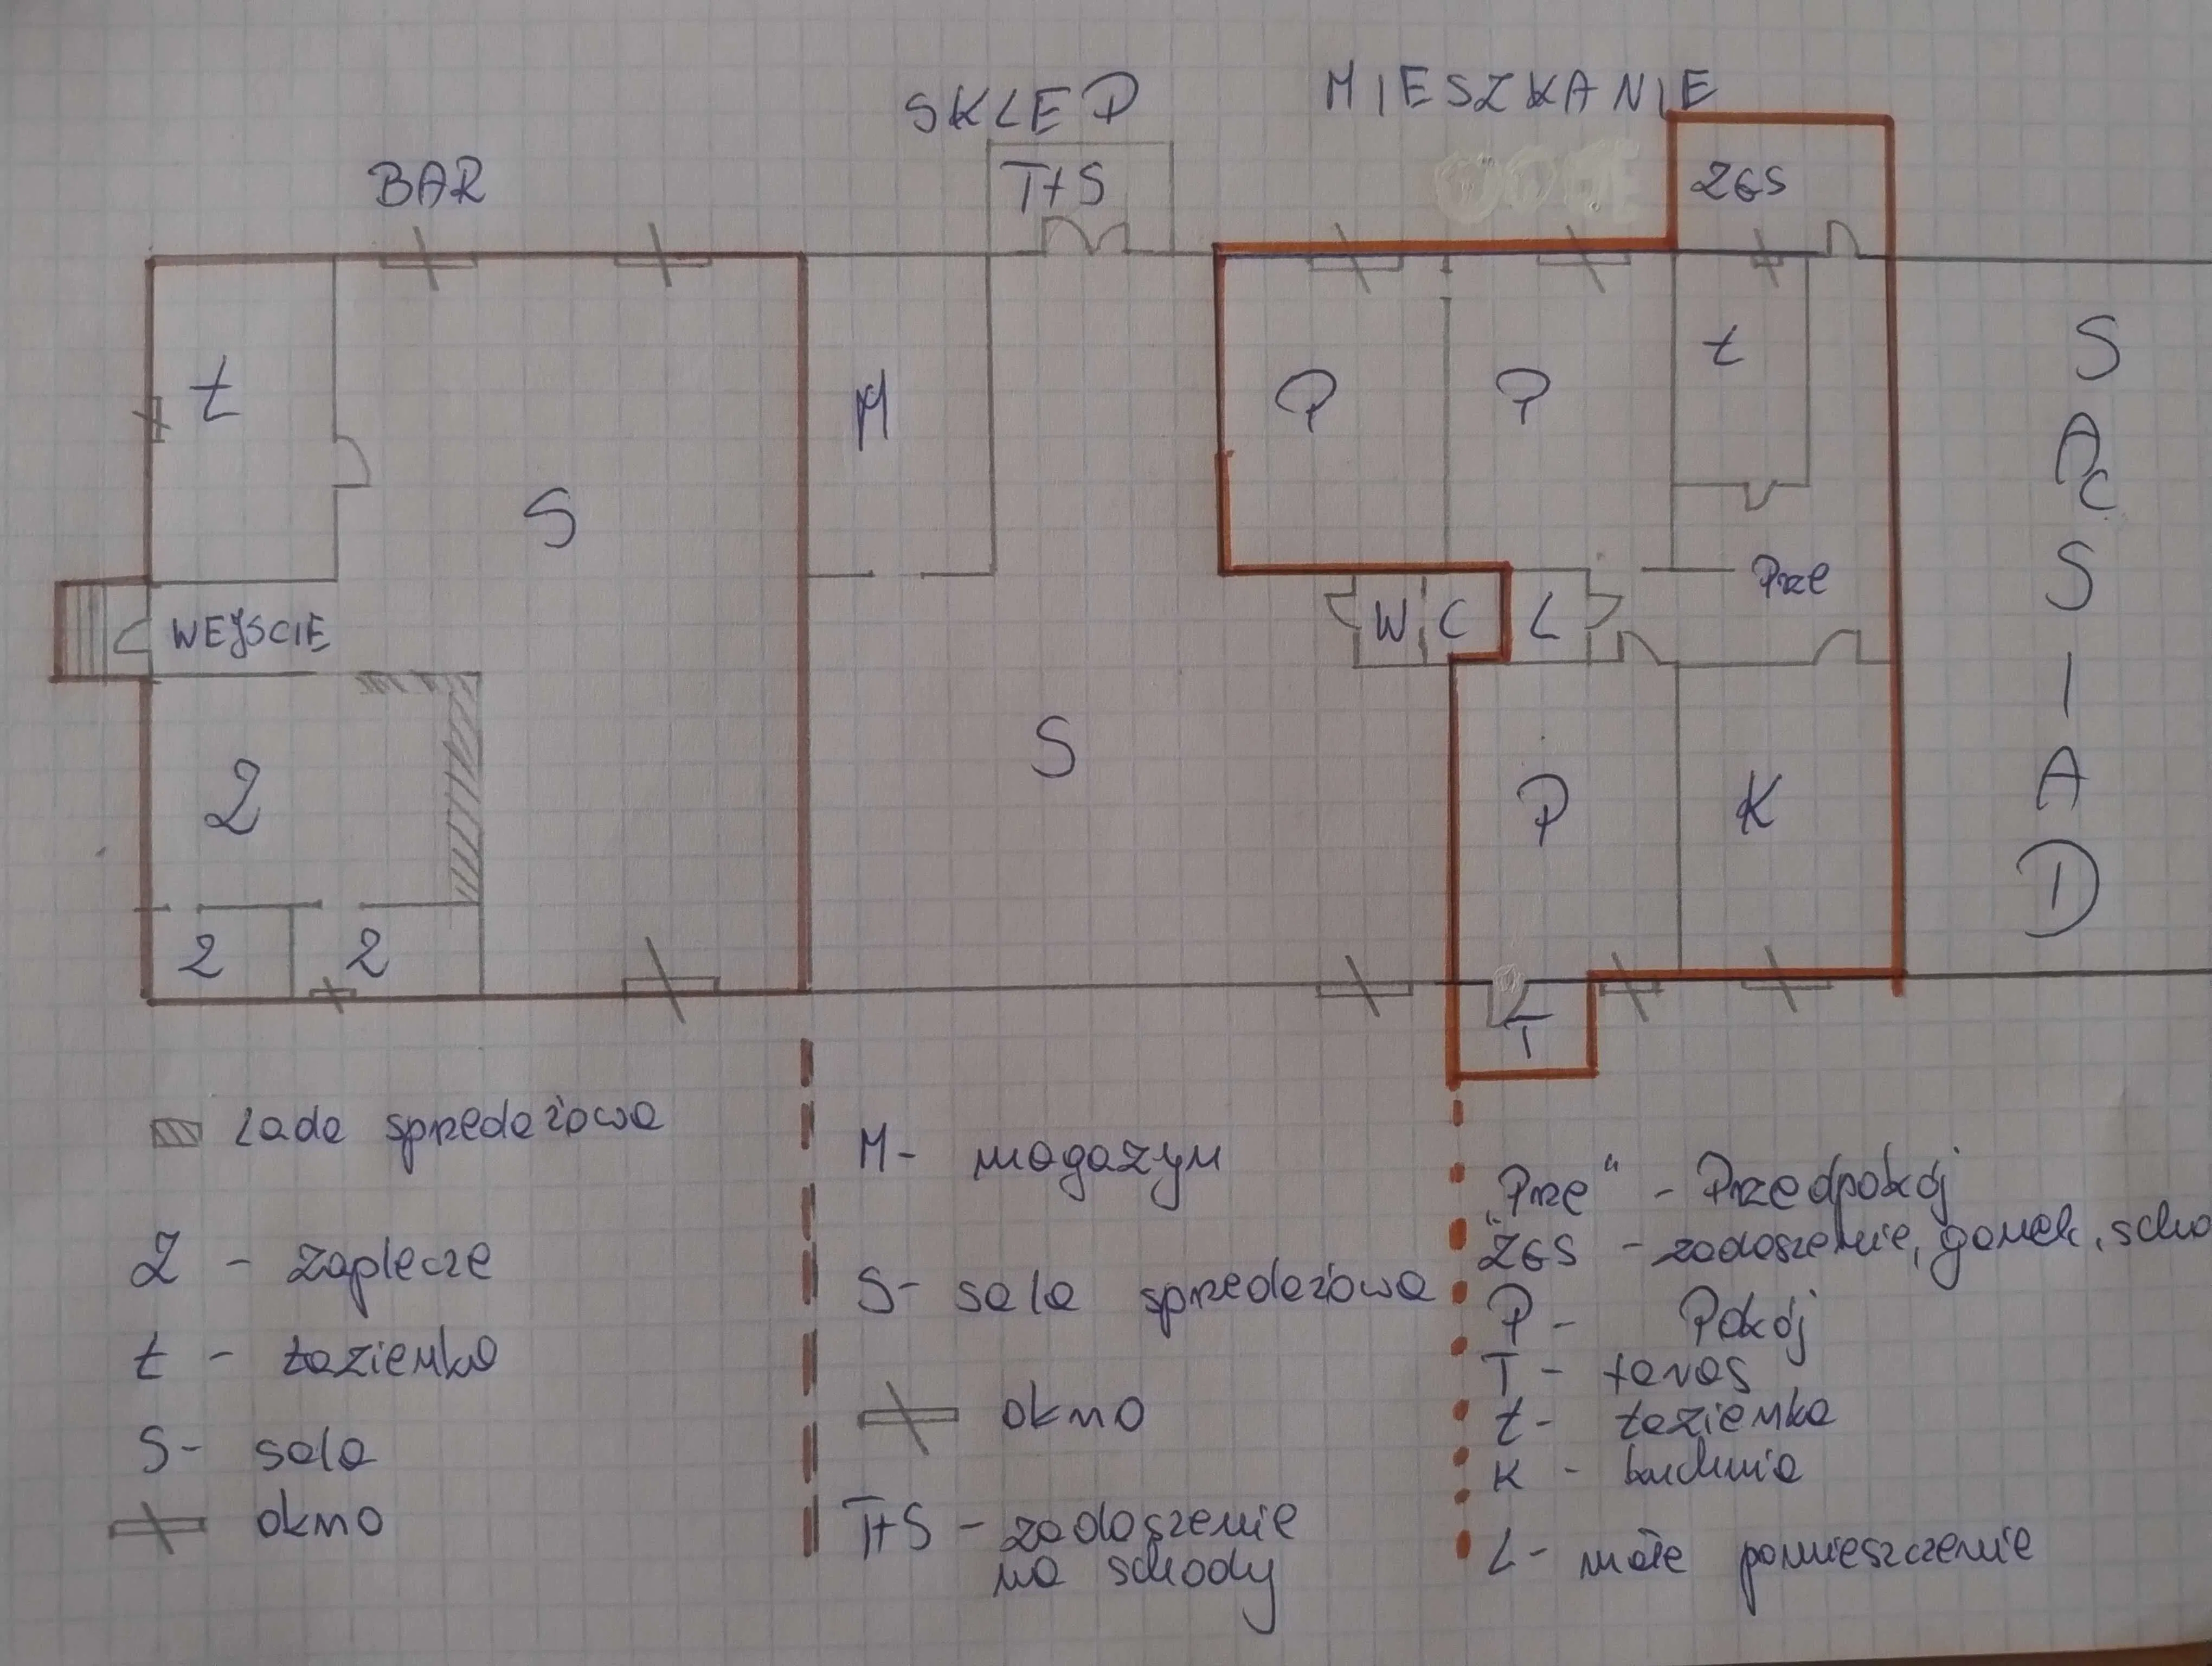 MIESZKANIE
SKLEP
BAR
T+S
ZGS
Ł
M
P
P
Ł
S
WEJSCIE
W C
L
Prze
S
Z
P
K
Z
Z
T
SĄSIAD
Lada sprzedażowa
Z - zaplecze
Ł - Łazienka
S - sala
okno
M - magazyn
S - sala sprzedażowa
okno
T+S - zadaszenie
na schody
"Prze" - Przedpokój
"ZGS - zadaszenie, ganek, scho
P - Pokój
T - taras
Ł - Łazienka
K - kuchnia
L - małe pomieszczenie